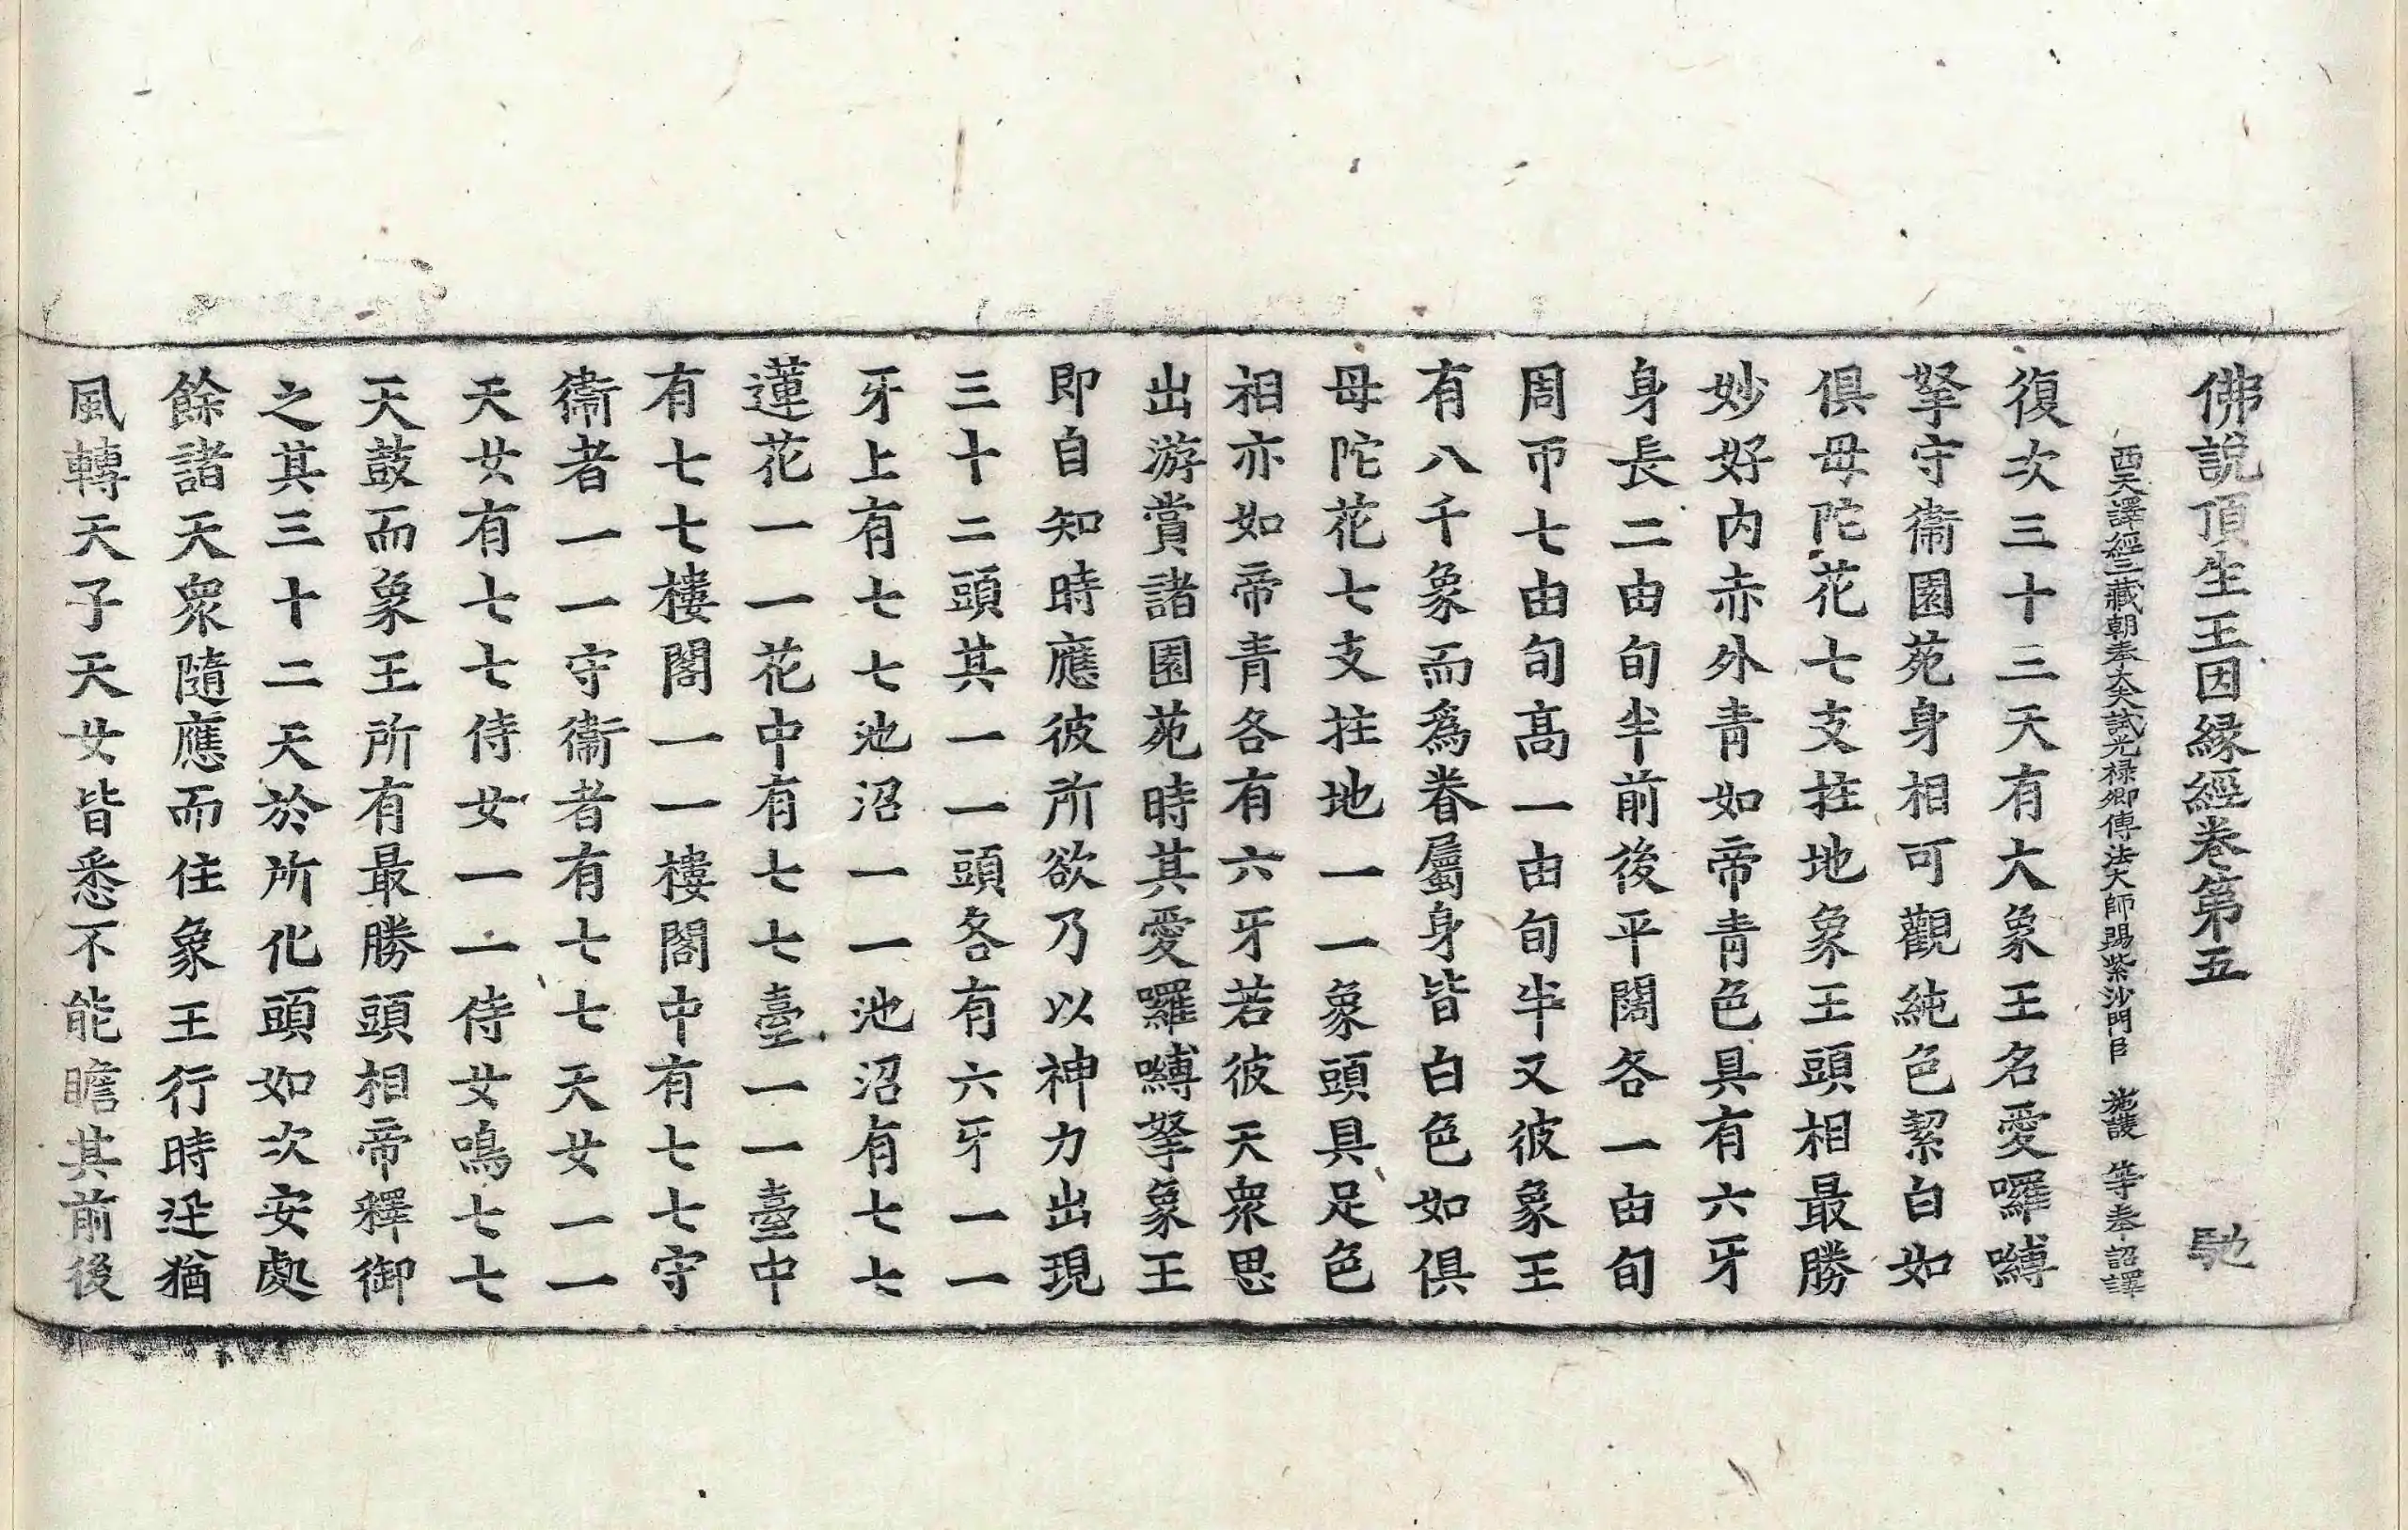 佛說頂生王因緣經卷第五 馳
西天譯經三藏朝奉大夫試光祿卿傳法大師賜紫沙門臣 施護 等奉 詔譯
復次三十三天有大象王名愛囉嚩
拏守衞園苑身相可觀純色絜白如
俱母陀花七支拄地象王頭相最勝
妙好內赤外青如帝青青色具有六牙
身長二由旬半前後平闊各一由旬
周帀七由旬高一由旬半又彼象王
有八千象而爲眷屬身皆白色如俱
母陀花七支拄地一一象頭具足色
相亦如帝青各有六牙若彼天衆思
出游賞諸園苑時其愛囉嚩拏象王
即自知時應彼所欲乃以神力出現
三十二頭其一一頭各有六牙一一
牙上有七七池沼一一池沼有七七
蓮花一一花中有七七臺一一臺中
有七七樓閣一一樓閣中有七七守
衞者一一守衞者有七七天女一一
天女有七七侍女一一侍女鳴七七
天鼓而象王所有最勝頭相帝釋御
之其三十二天於所化頭如次安處
餘諸天衆隨應而住象王行時迅猶
風轉天子天女皆悉不能瞻其前後